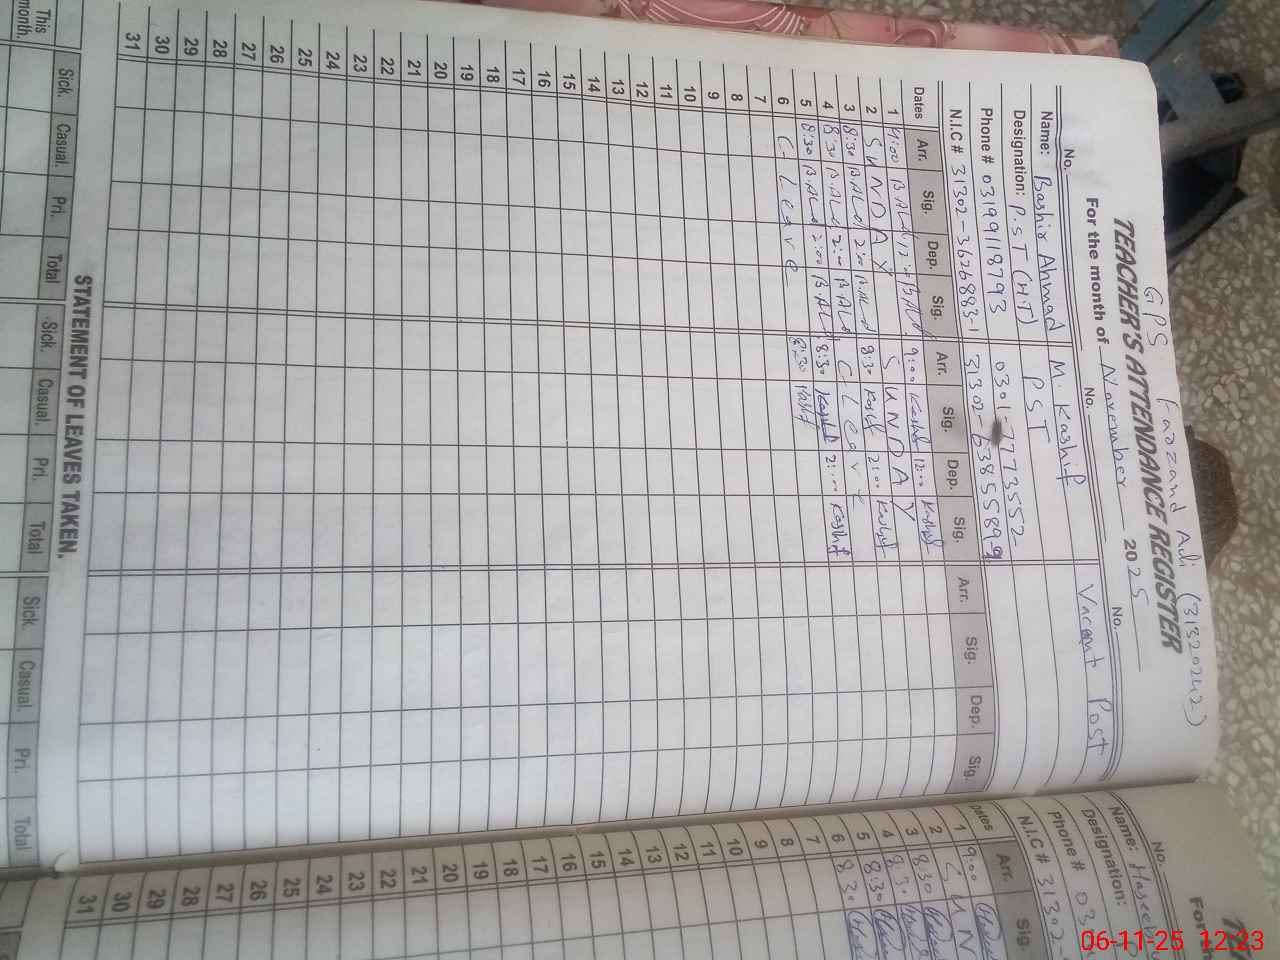 GPS Farzand Ali (31320242)
TEACHER'S ATTENDANCE REGISTER
For the month of November 2025
No. No. No.
Name: Bashir Ahmad M. Kashif Vacant Post
Designation: P.ST (H.T) PST
Phone # 03199118793 0301-7773552
N.I.C # 31302-3626883-1 31302-6385589-9
Dates Arr. Sig. Dep. Sig. Arr. Sig. Dep. Sig. Arr. Sig. Dep. Sig.
1 9:00 12:00 9:00 Kashif 12:00 Kashif
2 SUNDAY SUNDAY
3 8:30 2:00 8:30 Kashif 2:00 Kashif
4 8:30 2:00 C-Leave
5 8:30 2:00 8:30 Kashif 2:00 Kashif
6 C-Leave 8:30 Kashif
7
8
9
10
11
12
13
14
15
16
17
18
19
20
21
22
23
24
25
26
27
28
29
30
31
STATEMENT OF LEAVES TAKEN.
Sick. Casual. Pri. Total Sick. Casual. Pri. Total Sick. Casual. Pri. Total
This month.
No.
For th
Name: Haseeb
Designation:
Phone # 03
N.I.C # 31302-
Dates Arr. Sig.
1 9:00
2 SUN
3 830
4 8:30
5 8:30
6 830
7
8
9
10
11
12
13
14
15
16
17
18
19
20
21
22
23
24
25
26
27
28
29
30
31
06-11-25 12:23